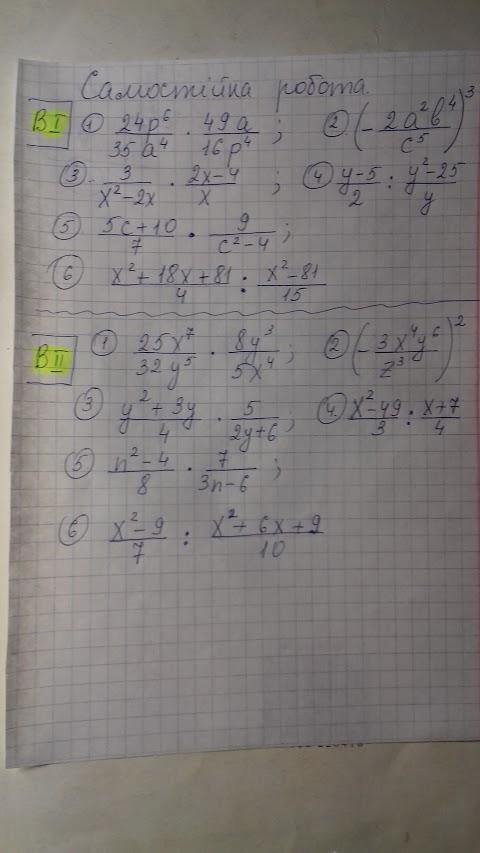 Самостійна робота.
В I ① 24p⁶/35a⁴ · 49a/16p⁴ ; ② (- 2a²b⁴/c⁵)³
③ 3/x²-2x · 2x-4/x ; ④ y-5/2 : y²-25/y
⑤ 5c+10/7 · 9/c²-4 ;
⑥ x²+18x+81/4 : x²-81/15
В II ① 25x⁷/32y⁵ · 8y³/5x⁴ ; ② (- 3x⁴y⁶/z³)²
③ y²+3y/4 · 5/2y+6 ; ④ x²-49/3 : x+7/4
⑤ n²-4/8 · 7/3n-6 ;
⑥ x²-9/7 : x²+6x+9/10